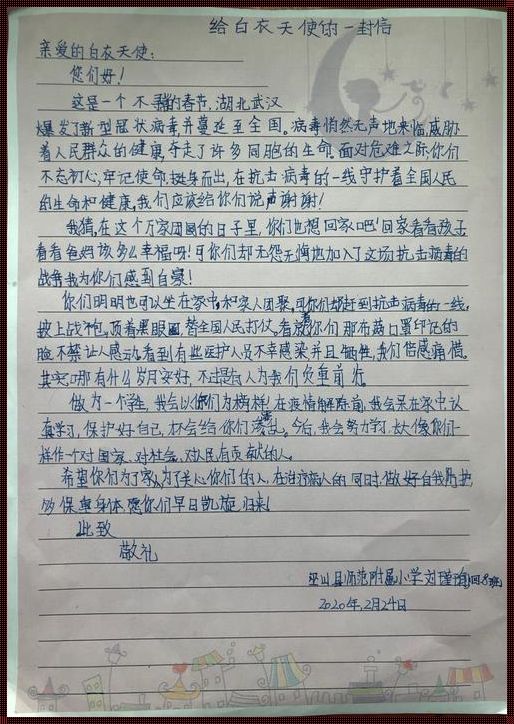 给白衣天使的一封信
亲爱的白衣天使:
您们好!
这是一个不寻常的春节,湖北武汉
爆发了新型冠状病毒,并蔓延至全国。病毒悄然无声地来临,威胁
着人民群众的健康,夺走了许多同胞的生命。面对危难之际,你们
不忘初心,牢记使命,挺身而出,在抗击病毒的一线守护着全国人民
的生命和健康,我们应该给你们说声谢谢!
我猜,在这个万家团圆的日子里,你们也想回家吧!回家看看孩子,
看看爸妈该多么幸福呀!可你们却无怨无悔地加入了这场抗击病毒的
战争,我为你们感到自豪!
你们明明也可以坐在家中,和家人团聚,可你们却赶到抗击病毒的一线,
披上战袍,顶着黑眼圈,替全国人民打仗。看着你们那布满口罩印记的
脸,不禁让人感动,看到有些医护人员不幸感染并且牺牲,我们倍感痛惜。
其实哪有什么岁月安好,不过是有人为我们负重前行。
做为一个学生,我会以你们为榜样,在疫情解除前,我会呆在家中,认
真学习,保护好自己,不会给你们添乱。今后,我会努力学习,长大像你们一
样作一个对国家、对社会、对人民有贡献的人。
希望你们为了家人,为了关心你们的人,在治疗病人的同时,做好自我防护,
保重身体,愿你们早日凯旋归来!
此致
敬礼
巫山县师范附属小学刘瑾
2020年,2月24日